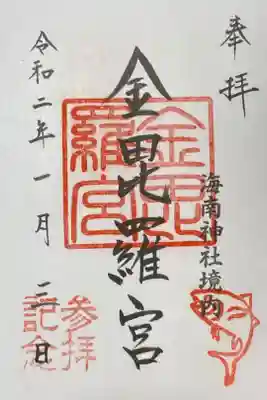 奉拝
海南神社境内
金毘羅宮
金毘羅宮
参拝記念
令和二年一月三日